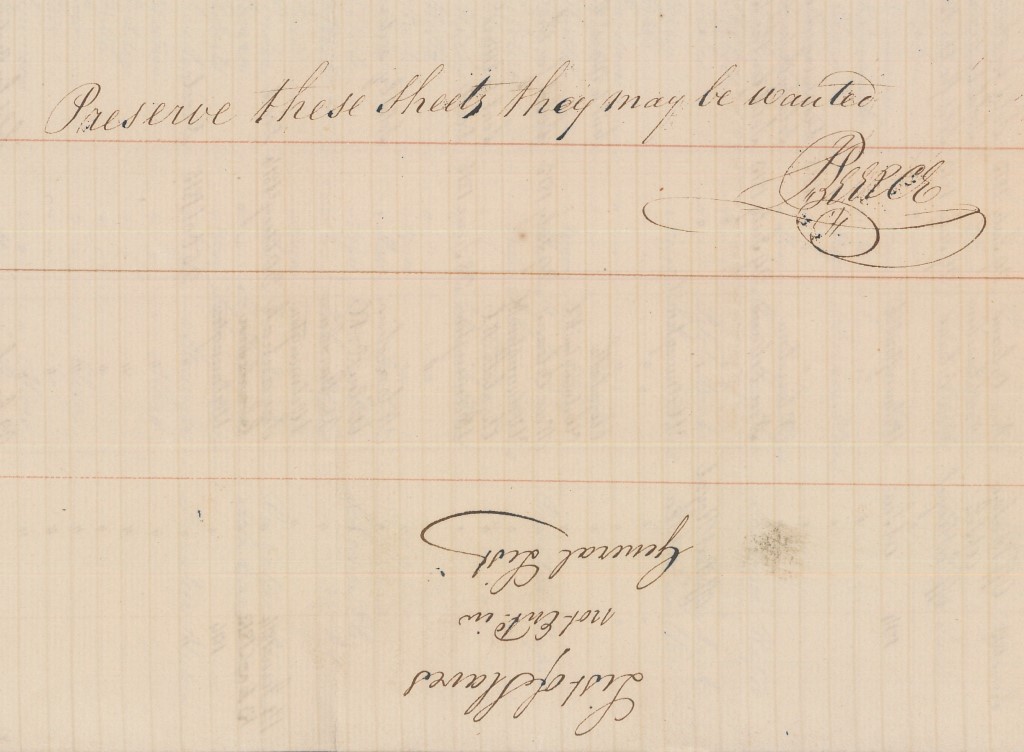 Preserve these sheets they may be wanted
List of Slaves
not Entd in
General List